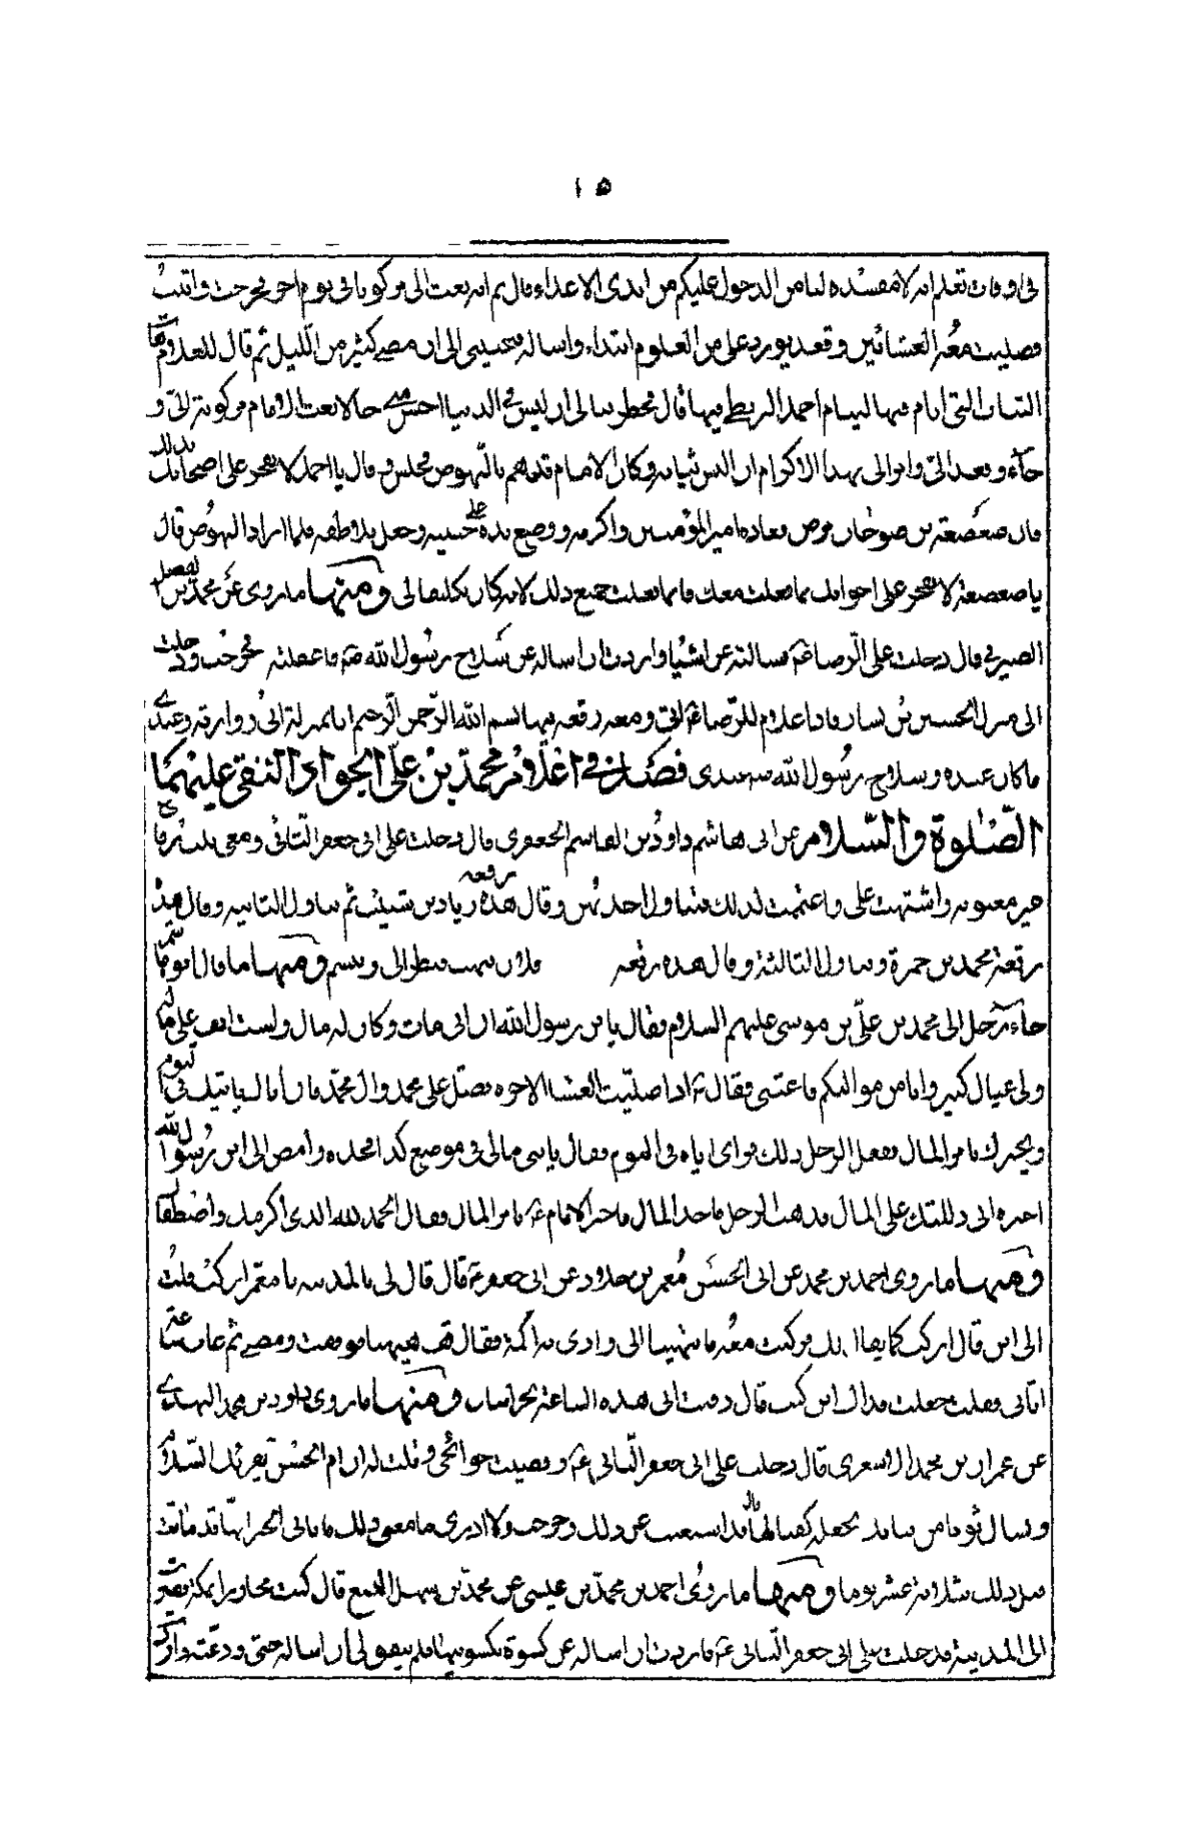 ١٥
فى اوقات تعلم انه لا مفسده لنا من الدخول عليكم من ايدى الاعداء قال ثم انه بعث الى مركوبا فى يوم اخر فخرجت واتيت
فصليت معه العشائين وقعد يورد على من العلوم ابتداء واساله فيجيبنى الى ان مضى كثير من الليل ثم قال للغلام هات
الثياب التى انام فيها لينام احمد البزنطى فيها قال فخطر ببالى ان ليس فى الدنيا احسن منى حالا بعث الامام مركوبه الى و
جاء وقعد الى وامر لى بهذا الاكرام وكان الامام قد هم بالنهوض فجلس وقال يا احمد لا تفخر على اصحابك بذلك
فان صعصعة بن صوحان مرض فعاده امير المؤمنين واكرمه ووضع يده على جبينه وجعل يلاطفه فلما اراد النهوض قال
يا صعصعة لا تفخر على اخوانك بما فعلت معك فانما فعلت جميع ذلك لانه كان تكليفا لى ومنها ما روى عن محمد بن الفضل
الصيرفى قال دخلت على الرضا ع فسالته عن اشيا واردت ان اساله عن سلاح رسول الله ص فاغفلته فخرجت ودخلت
الى منزل الحسين بن بشار فاذا غلام للرضا ع اتى ومعه رقعه فيها بسم الله الرحمن الرحيم انا بمنزلة ابى ووارثه وعندى
ما كان عنده وسلاح رسول الله ص عندى فصل فى اعلام محمد بن على الجواد التقى عليهما
الصلوة والسلام عن ابى هاشم داود بن القاسم الجعفرى قال دخلت على ابى جعفر الثانى ومعى ثلث رقاع
غير معنونه واشتبهت على واغتممت لذلك فتناول احديهن وقال هذه رقعه زياد بن شبيب ثم تناول الثانيه وقال هذه
رقعة محمد بن حمزة وتناول الثالثة وقال هذه رقعه فلان فبهت فنظر الى وتبسم ومنها ما قال ابو هاشم
جاء رجل الى محمد بن على بن موسى عليهم السلام فقال يا بن رسول الله ان ابى مات وكان له مال ولست اقف على ماله
ولى عيال كثير وانا من مواليكم فاغثنى فقال ع اذا صليت العشا الاخره فصل على محمد وال محمد فان اباك ياتيك فى النوم
ويخبرك بامر المال ففعل الرجل ذلك فراى اباه فى النوم فقال يا بنى مالى فى موضع كذا فخذه وامض الى ابن رسول الله
اخبره انى دللتك على المال فذهب الرجل فاخذ المال فاخبر الامام ع بامر المال وقال الحمد لله الذى اكرمك واصطفاك
ومنها ما روى احمد بن محمد عن ابى الحسن معمر بن خلاد عن ابى جعفر ع قال قال لى بالمدينه يا معمر اركب قلت
الى اين قال اركب كما يقال لك فركبت معه فانتهينا الى وادى فقال قف هيهنا فوقفت ومضى ثم غاب عنى ساعة
اتانى فقلت جعلت فداك اين كنت قال دفنت ابى هذه الساعة بخراسان ومنها ما روى داود بن محمد النهدى
عن عمران بن محمد الاشعرى قال دخلت على ابى جعفر الثانى ع وقضيت حوائجى وقلت له ان ام الحسن تقرئك السلام
وتسال ثوبا من ثيابك تجعله كفنا لها قال قد استغنت عن ذلك فخرجت ولا ادرى ما معنى ذلك فاتانى الخبر انها قد ماتت
قبل ذلك بثلاثة عشر يوما ومنها ما روى احمد بن محمد بن عيسى عن محمد بن سهل اليسع قال كنت مجاورا بمكة فصرت
الى المدينة فدخلت على ابى جعفر الثانى ع فاردت ان اساله عن كسوة يكسونيها فلم يتفق لى ان اساله حتى ودعته واردت